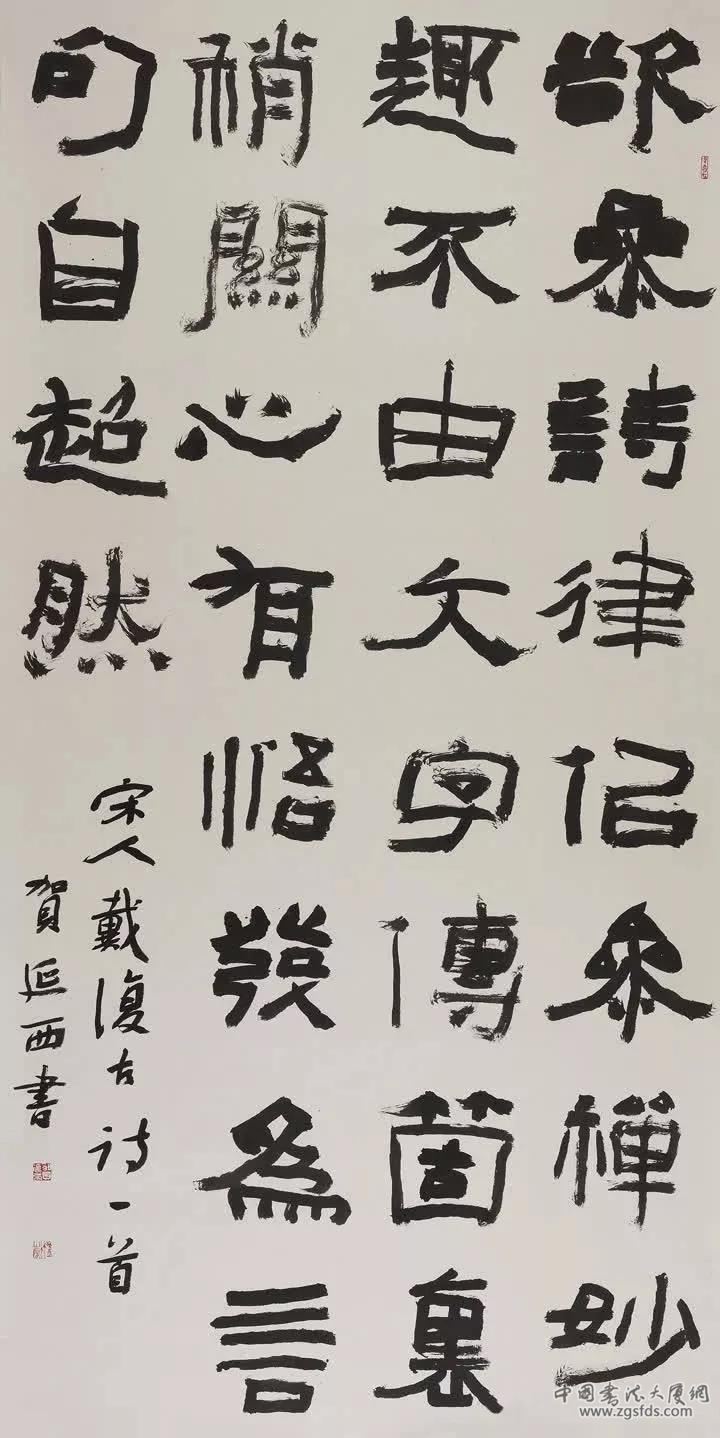 欲參詩律佀參禪妙
趣不由文字傳箇裏
稍關心有悟發為言
句自超然
宋人戴復古詩一首
賀延西書
中國書法大廈網
www.zgsfds.com